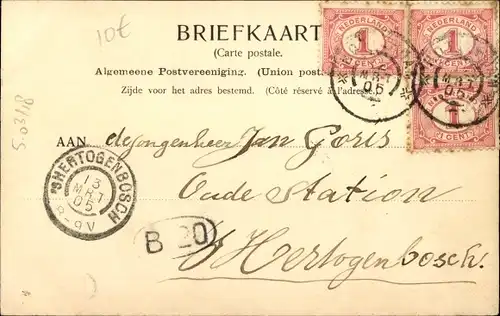 10€
BRIEFKAART
(Carte postale.
Algemeene Postvereeniging. (Union postale
Zijde voor het adres bestemd. (Côté réservé à l'adresse.)
NEDERLAND
1
CENT
NEDERLAND
1
CENT
1
CENT
AAN de jongenheer Jan Goris
Oude Station
's Hertogenbosch.
'SHERTOGENBOSCH
13
MRT
05
8-9V
B 20